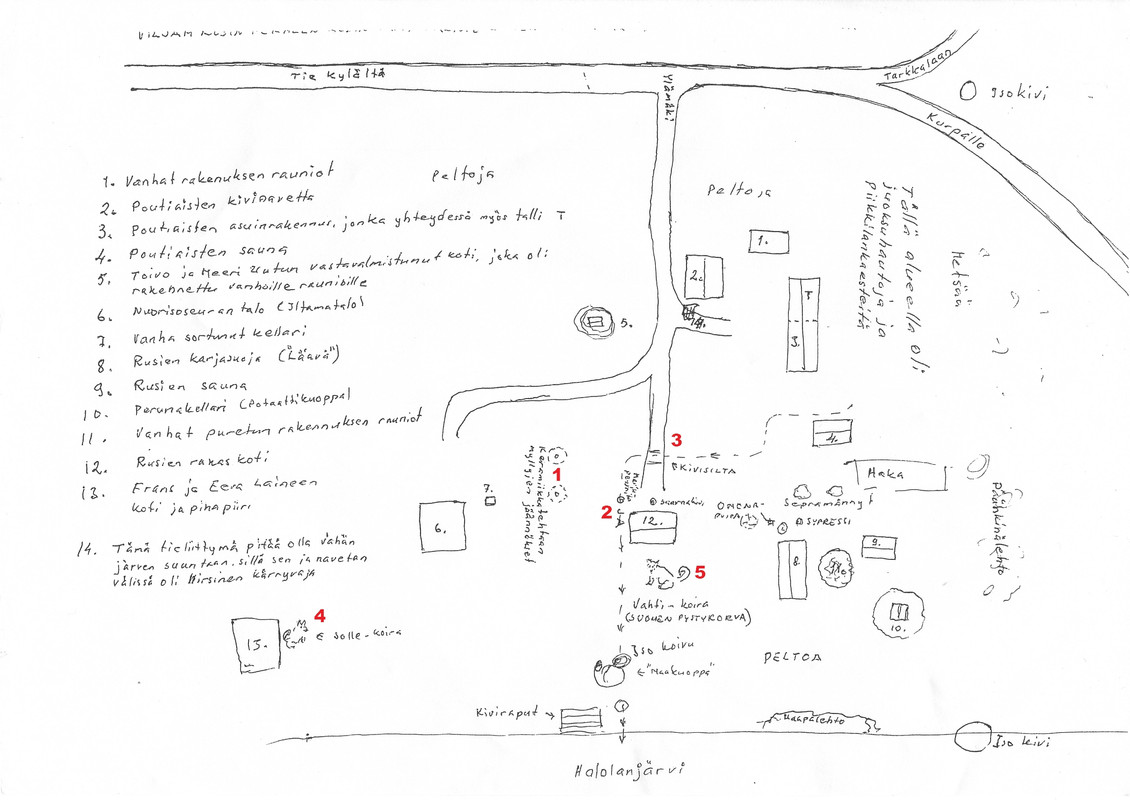 Tie Kylältä
Ylämäki
Tarkkalaan
Kurpälle
Isokivi
1. Vanhat rakenuksen rauniot
2. Poutiaisten kivinavetta
3. Poutiaisten asuinrakennus, jonka yhteydessä myös talli T
4. Poutiaisten sauna
5. Toivo ja Meeri Uutun vastavalmistunut koti, joka oli
rakennettu vanhoille raunioille
6. Nuorisoseuran talo (Iltamatalo)
7. Vanha sortunut kellari
8. Rusien karjasuoja ("Läävä")
9. Rusien sauna
10. Perunakellari (Potaattikuoppa)
11. Vanhat puretun rakennuksen rauniot
12. Rusien rakas koti
13. Frans ja Eeva Laineen
koti ja pihapiiri
14. Tämä tieliittymä pitää olla vähän
järven suuntaan, sillä sen ja navetan
välissä oli hirsinen kärryvaja
Peltoja
Peltoja
Tällä alueella oli
juoksuhautoja ja
piikkilankaesteitä
Metsää
1.
2.
T
3.
14.
5.
4.
3
KIVISILTA
Haka
Pähkinälehto
Keramiikkatehtaan
myllyjen jäännökset
1
2
7.
6.
Saarnatuvi
12.
OMENA-
PUITA
Sepramännyt
SYPRESSI
8.
9.
10.
5
Vahti-koira
(SUOMEN PYSTYKORVA)
4
13.
Solle-koira
Iso koivu
"Maakuoppa"
PELTOA
Kiviraput
Haapalehto
Iso kivi
Hololanjärvi